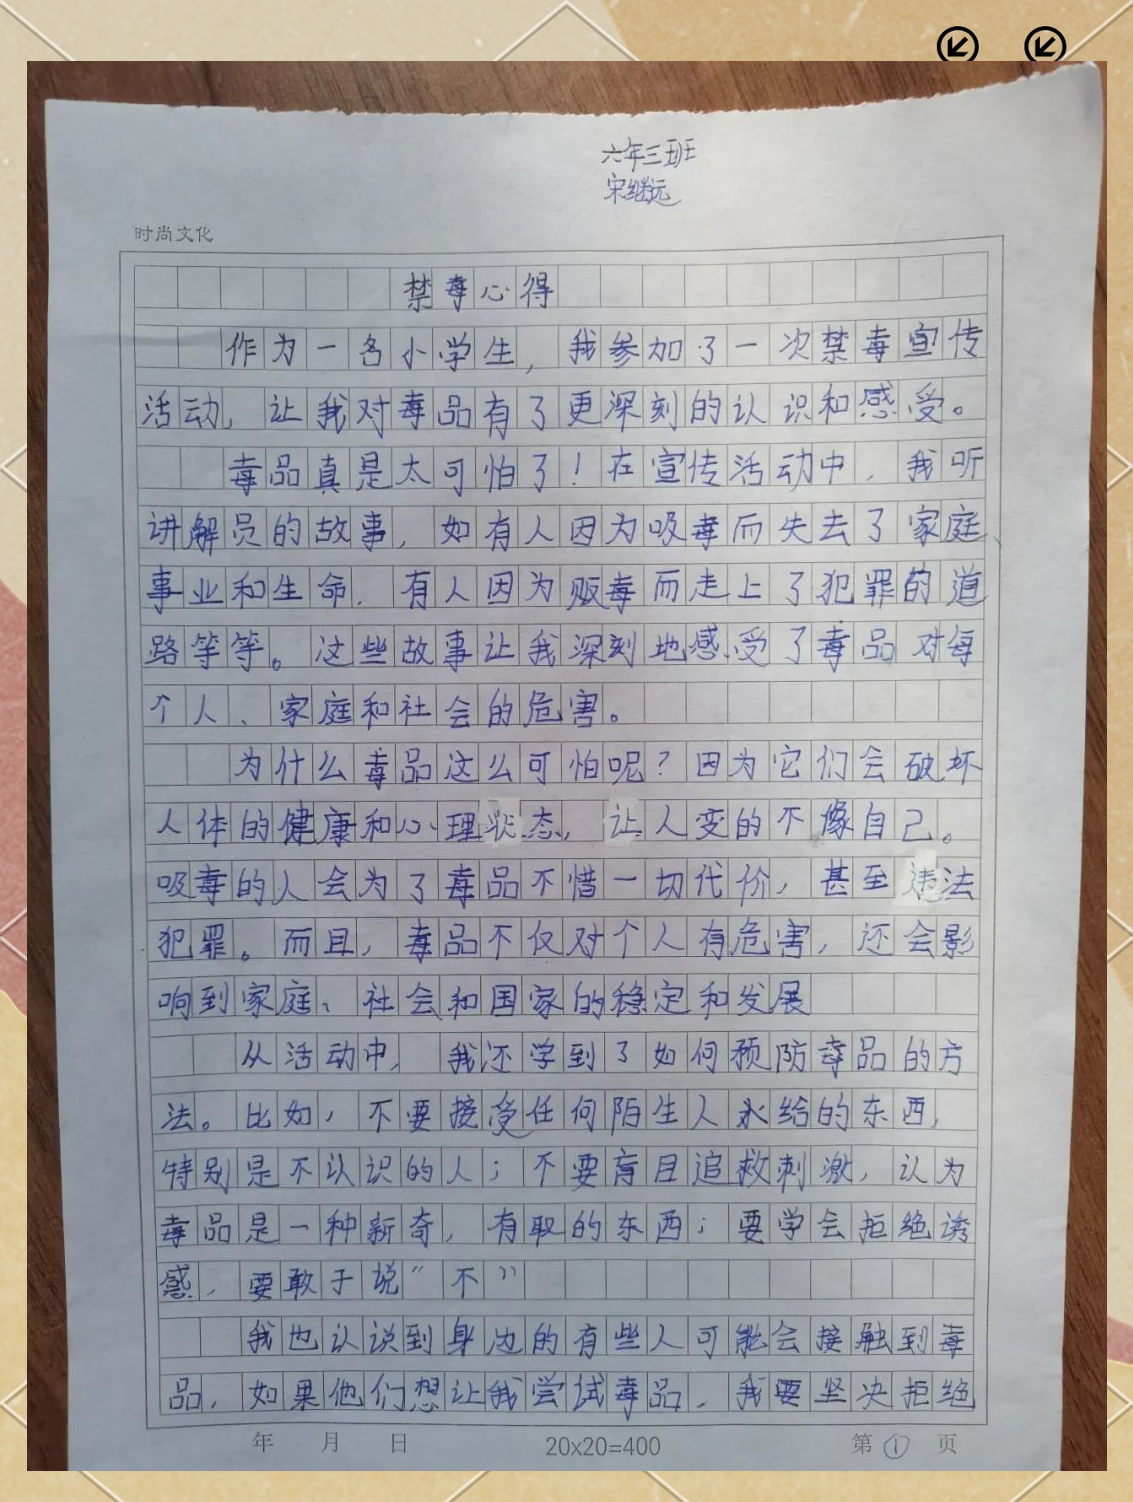 六年三班
宋继远
时尚文化
禁毒心得
作为一名小学生，我参加了一次禁毒宣传
活动，让我对毒品有了更深刻的认识和感受。
毒品真是太可怕了！在宣传活动中，我听
讲解员的故事，如有人因为吸毒而失去了家庭、
事业和生命，有人因为贩毒而走上了犯罪的道
路等等。这些故事让我深刻地感受了毒品对每
个人、家庭和社会的危害。
为什么毒品这么可怕呢？因为它们会破坏
人体的健康和心理状态，让人变的不像自己。
吸毒的人会为了毒品不惜一切代价，甚至违法
犯罪。而且，毒品不仅对个人有危害，还会影
响到家庭、社会和国家的稳定和发展
从活动中，我还学到了如何预防毒品的方
法。比如，不要接受任何陌生人永给的东西，
特别是不认识的人；不要盲目追救刺激，认为
毒品是一种新奇，有取的东西；要学会拒绝诱
惑，要敢于说“不”
我也认识到身边的有些人可能会接触到毒
品，如果他们想让我尝试毒品，我要坚决拒绝
年 月 日 20x20=400 第①页